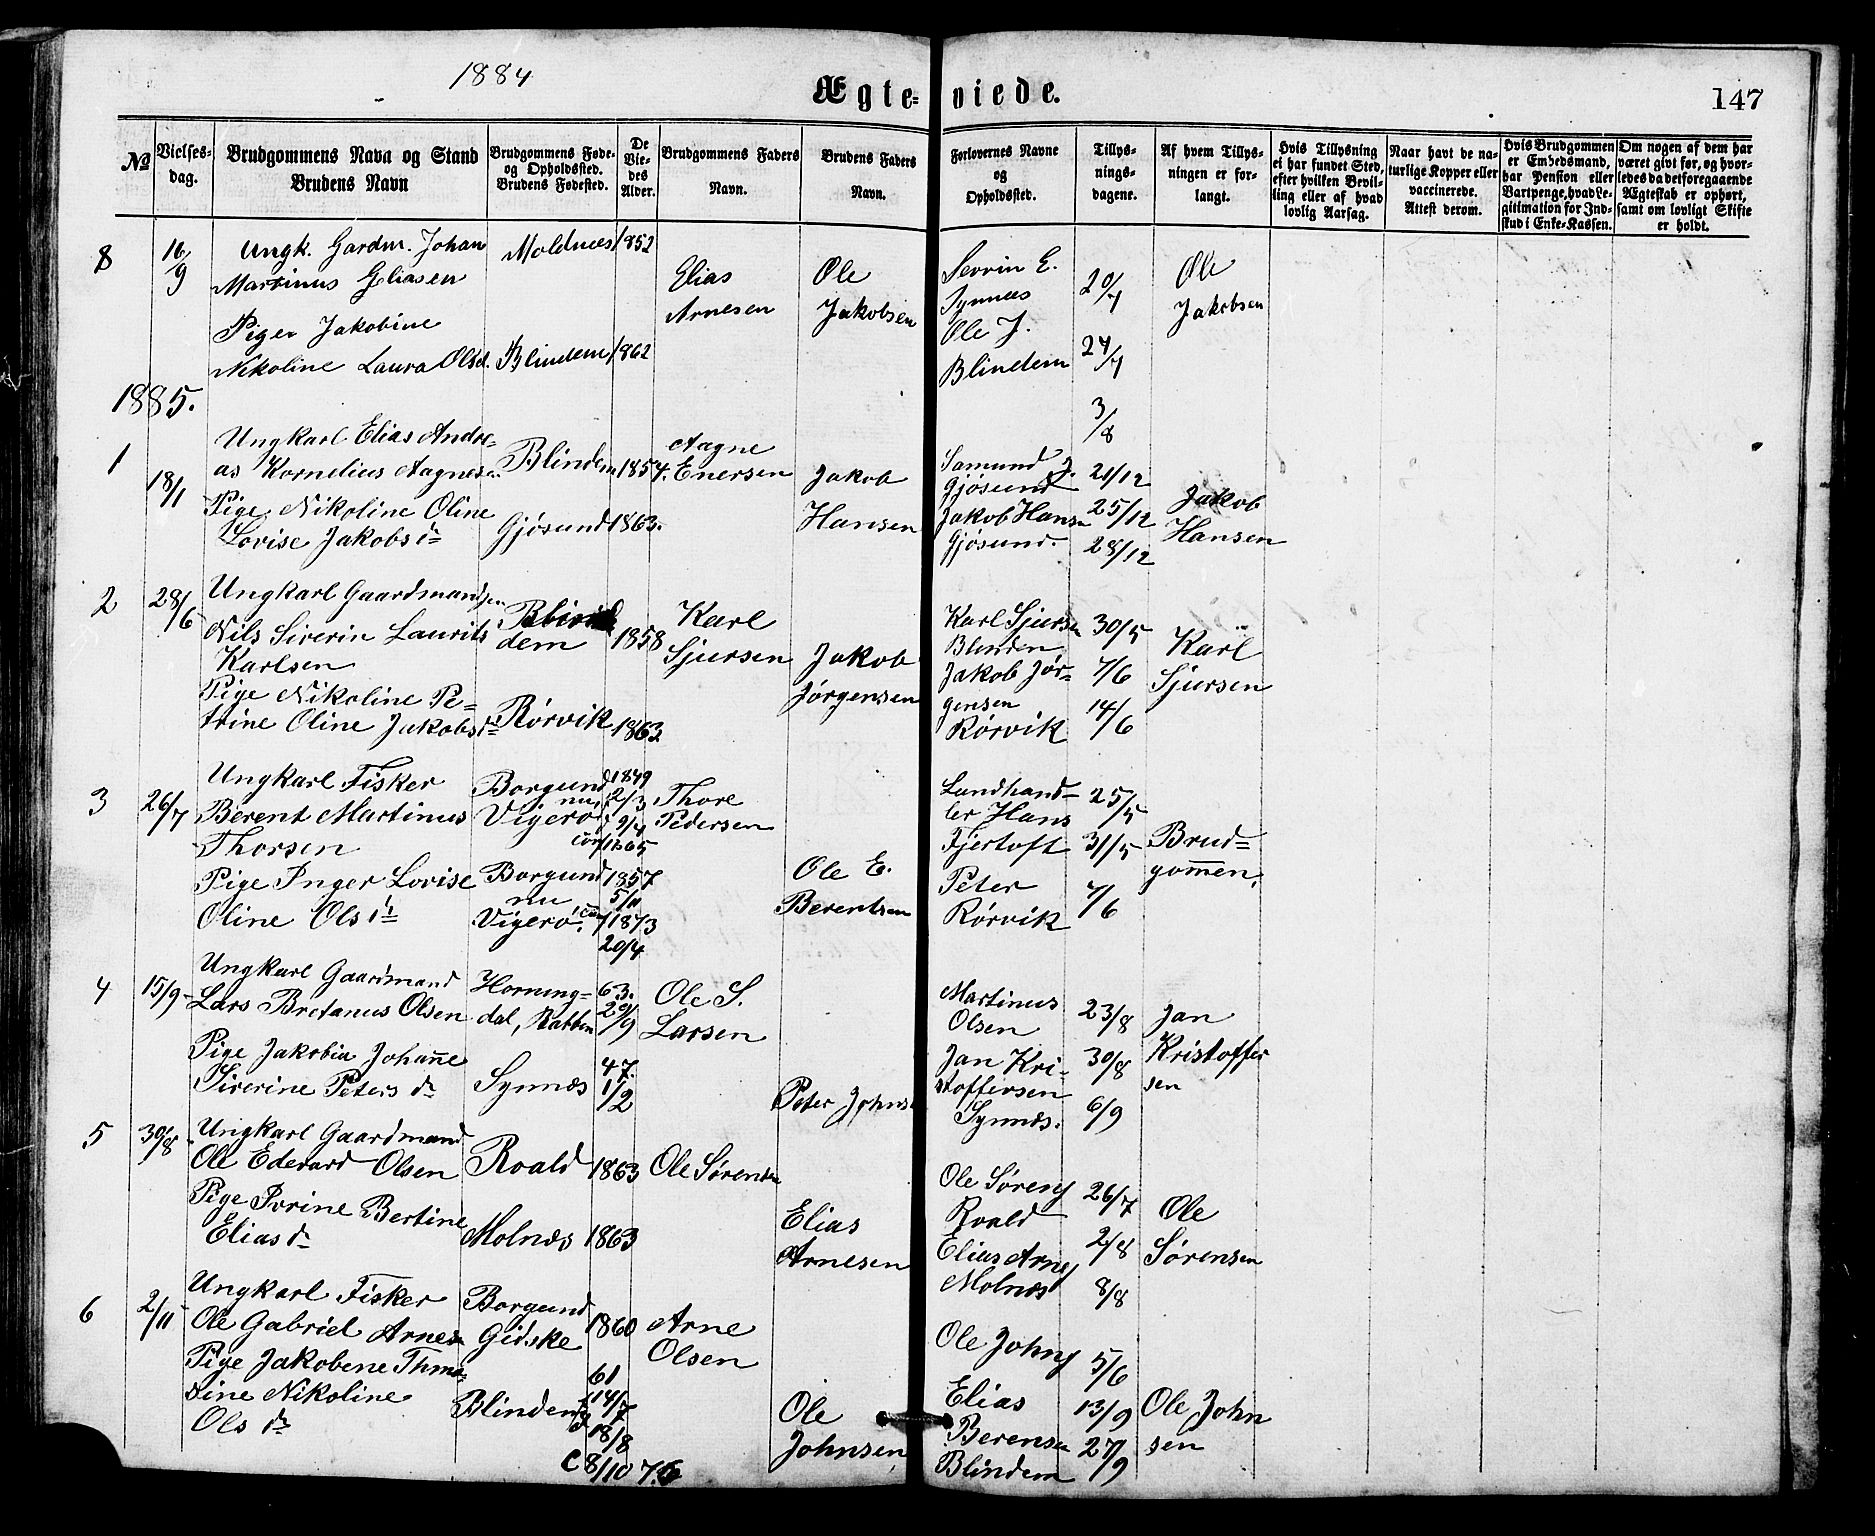 1884
Ægte- viede.
147
No
Vielses-
dag.
Brudgommens Navn og Stand
Brudens Navn
Brudgommens Føde-
og Opholdssted.
Brudens Fødested.
De
Vie-
des
Alder.
Brudgommens Faders
Navn.
Brudens Faders
Navn.
Forlovernes Navne
og
Opholdssted.
Tillys-
nings-
dagene.
Af hvem Tillys-
ningen er for-
langt.
Hvis Tillysning
ei har fundet Sted,
efter hvilken Bevil-
ling eller af hvad
lovlig Aarsag.
Naar havt de na-
turlige Kopper eller
vaccinerede.
Attest derom.
Hvis Brudgommen
er Embedsmand,
har Pension eller
Vartpenge, hvad Le-
gitimation for Ind-
skud i Enke-Kassen.
Om nogen af dem har
været givt før, og hvor-
ledes da det foregaaende
Ægteskab er ophørt,
samt om lovligt Skifte
er holdt.
8
16/9
Ungk. Gardm. Johan
Martinus Eliasen
Piger Jakobine
Nikoline Laura Olsd.
Moldnæs
Blindem
1852
1862
Elias
Arnesen
Ole
Jakobsen
Sevrin E.
Synnæs
Ole J.
Blindem
20/7
27/7
3/8
Ole
Jakobsen
1885.
1
18/1
Ungkarl Elias Andre-
as Kornelius Aagnesen
Pige Nikoline Oline
Lovise Jakobs dr
Blindem
Gjøsund
1854.
1863.
Aagne
Enersen
Jakob
Hansen
Samund J.
Gjøsund
Jakob Hansen
Gjøsund.
21/12
25/12
28/12
Jakob
Hansen
2
28/6
Ungkarl Gaardmandsen
Nils Siverin Laurits
Karlsen
Pige Nikoline Pe-
trine Oline Jakobs dr
Blin
dem
Rørvik
1858
1863
Karl
Sjursen
Jakob
Jørgensen
Karl Sjursen
Blinden
Jakob Jør-
gensen
Rørvik
30/5
7/6
14/6
Karl
Sjursen
3
26/7
Ungkarl Fisker
Berent Martinus
Thorsen
Pige Inger Lovise
Oline Ols dr
Borgund
nu
Vigerø
con
Borgund
nu
Vigerø. con
1849
12/3
9/4
1865
1857
5/11
1873
20/4
Thore
Pedersen
Ole E.
Berentsen
Landhand-
ler Hans
Fjertoft
Peter
Rørvik
25/5
31/5
7/6
Brud-
gommen.
4
15/9
Ungkarl Gaardmand
Lars Bretanus Olsen
Pige Jakobia Johanne
Siverine Peters dr
Horning-
dal, Rabben
Synnæs
63.
20/9
47.
1/2
Ole S.
Larsen
Peter Johns
Martinus
Olsen
Jan Kri-
stoffersen
Synnæs.
23/8
30/8
6/9
Jan
Kristoffer
sen
5
30/8
Ungkarl Gaardmand
Ole Edevard Olsen
Pige Ivrine Bertine
Elias dr
Roald
Molnæs
1863
1863
Ole Sørensen
Elias
Arnesen
Ole Sørens
Roald
Elias Arnes
Molnæs
26/7
2/8
8/8
Ole
Sørensen
6
2/11
Ungkarl Fisker
Ole Gabriel Arnesen
Pige Jakobene Thma-
sine Nikoline
Ols dr
Borgund
Gidske
Blindem
1860
61
f 14/7
d 18/8
C 8/10 76
Arne
Olsen
Ole
Johnsen
Ole Johns
Elias
Berensen
Blindem
5/6
13/9
27/9
Ole John
sen